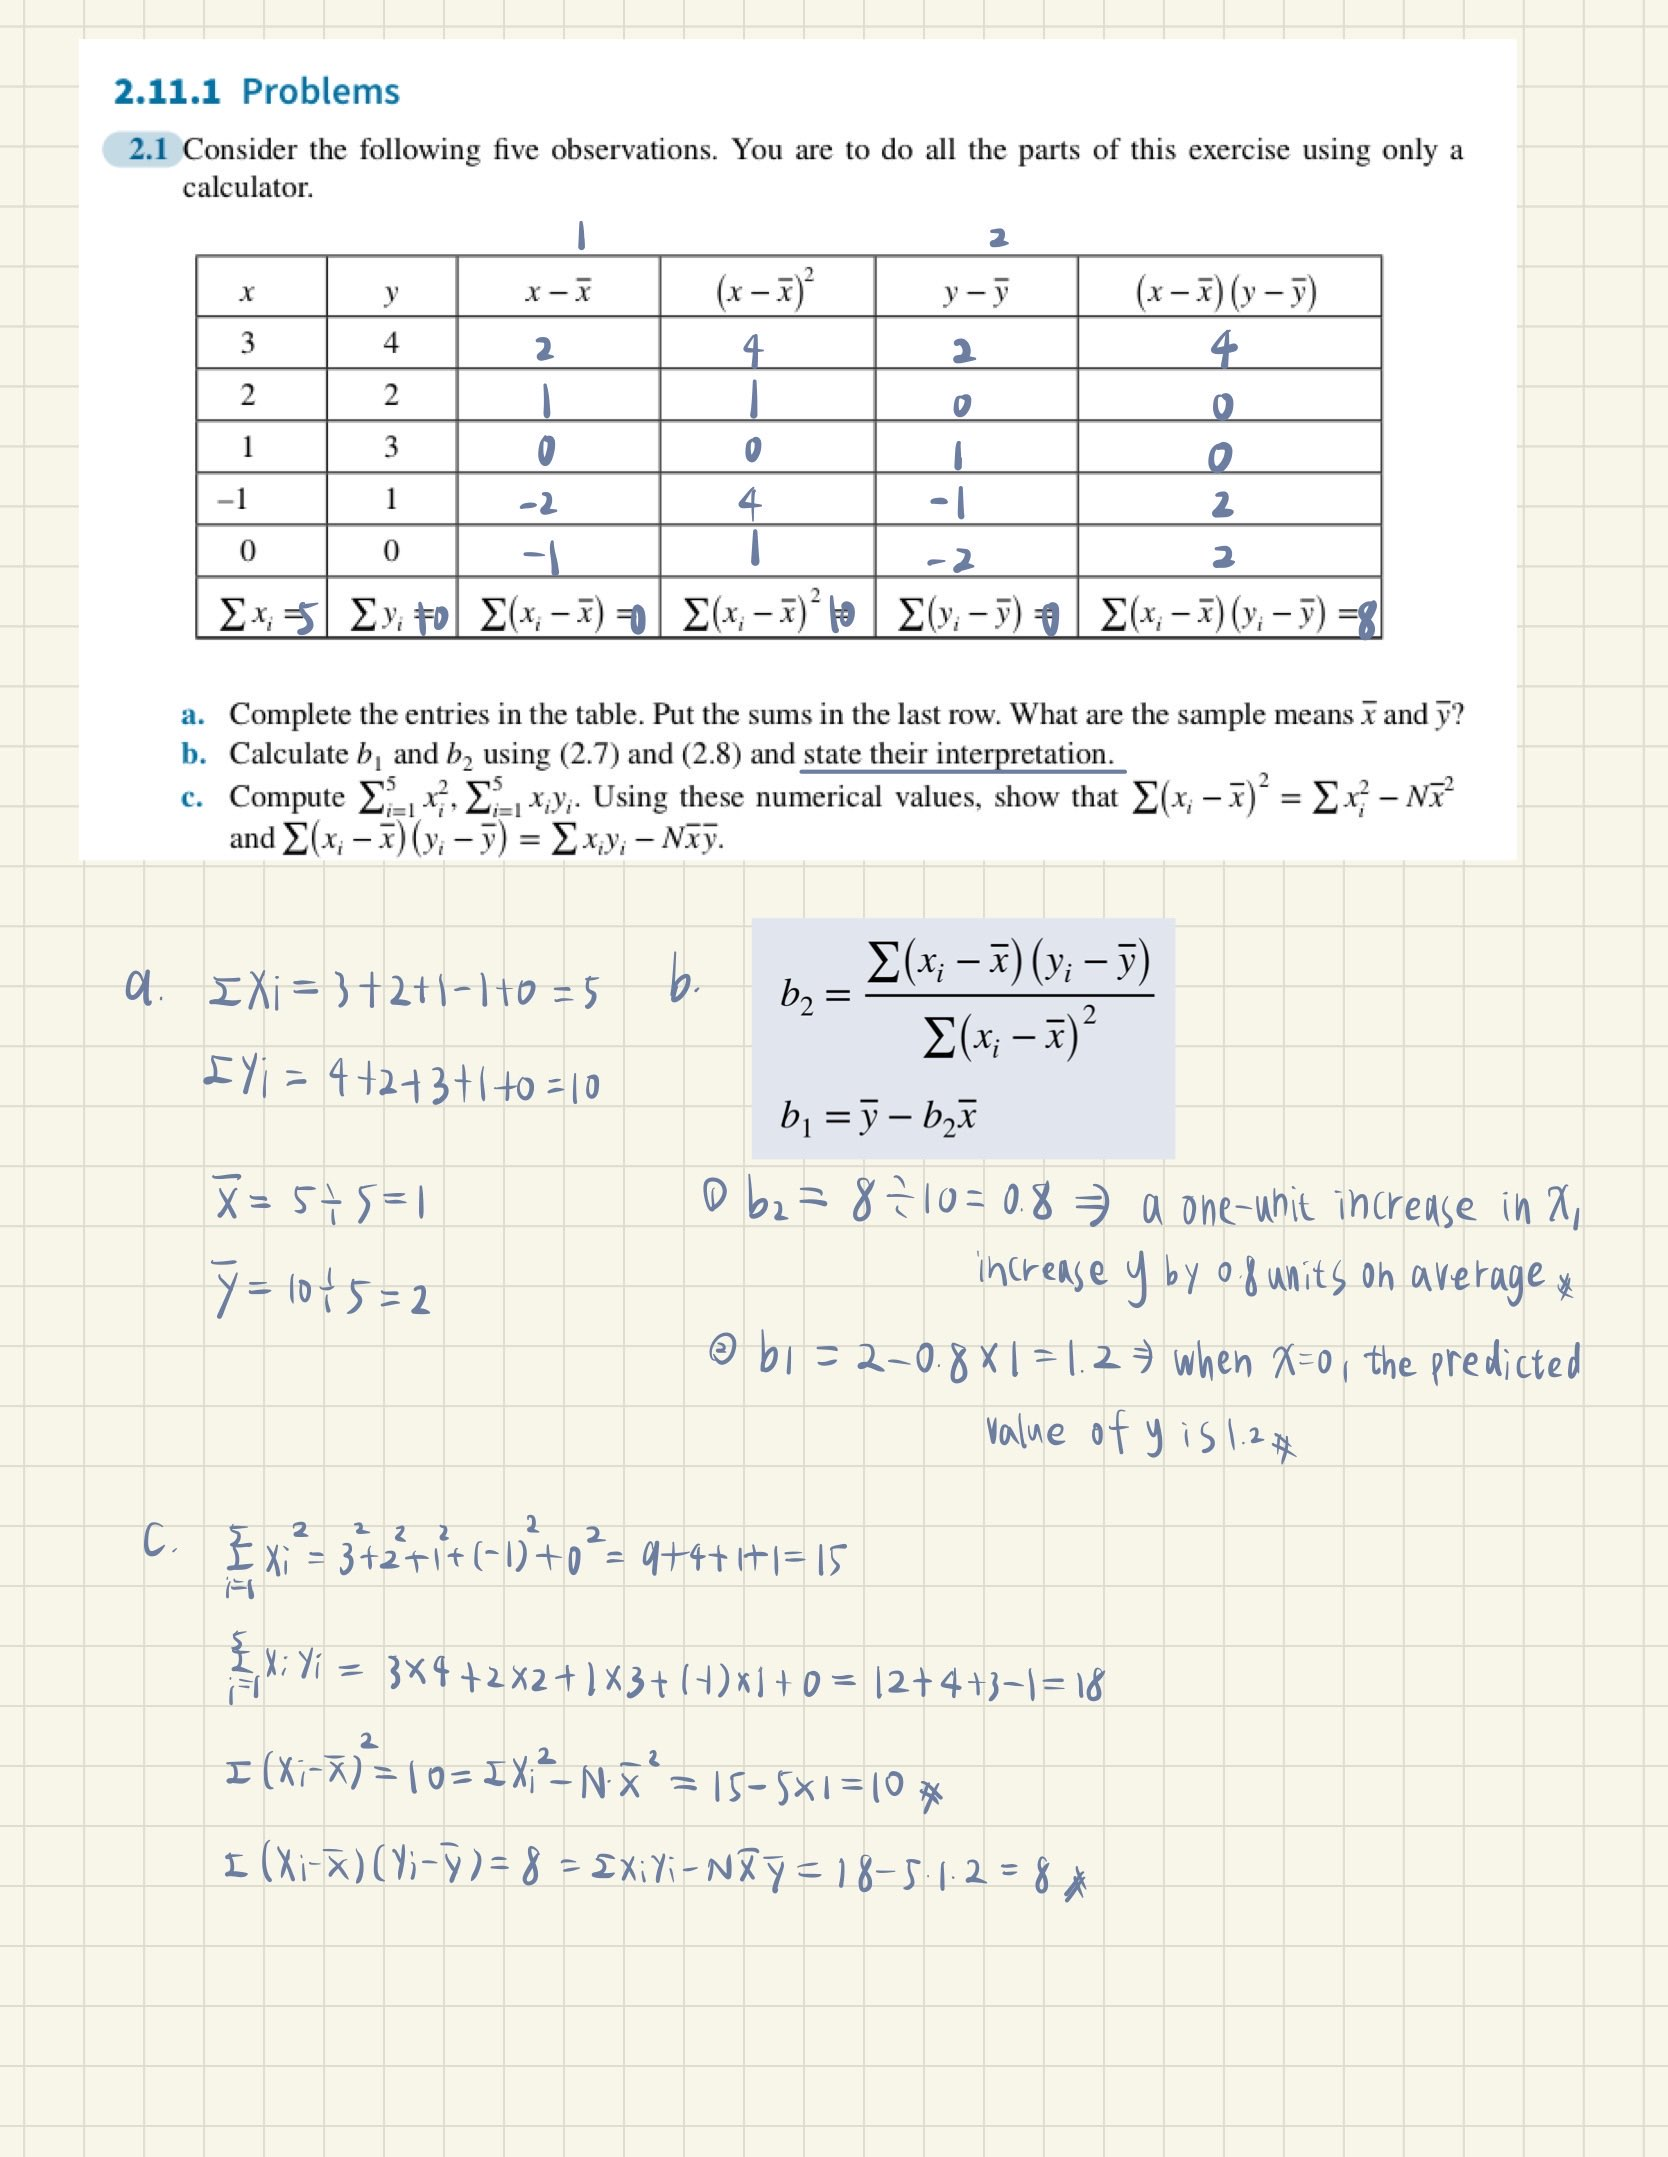 2.11.1 Problems
2.1 Consider the following five observations. You are to do all the parts of this exercise using only a
calculator.
1 2
x y x − x̄ (x − x̄)² y − ȳ (x − x̄)(y − ȳ)
3 4 2 4 2 4
2 2 1 1 0 0
1 3 0 0 1 0
−1 1 -2 4 -1 2
0 0 -1 1 -2 2
∑xᵢ = 5 ∑yᵢ = 10 ∑(xᵢ − x̄) = 0 ∑(xᵢ − x̄)² = 10 ∑(yᵢ − ȳ) = 0 ∑(xᵢ − x̄)(yᵢ − ȳ) = 8
a. Complete the entries in the table. Put the sums in the last row. What are the sample means x̄ and ȳ?
b. Calculate b₁ and b₂ using (2.7) and (2.8) and state their interpretation.
c. Compute ∑⁵ᵢ₌₁ xᵢ², ∑⁵ᵢ₌₁ xᵢyᵢ. Using these numerical values, show that ∑(xᵢ − x̄)² = ∑xᵢ² − Nx̄²
and ∑(xᵢ − x̄)(yᵢ − ȳ) = ∑xᵢyᵢ − Nx̄ȳ.
a. Σxi = 3+2+1-1+0 = 5
Σyi = 4+2+3+1+0 = 10
x̄ = 5÷5 = 1
ȳ = 10÷5 = 2
b. b₂ = ∑(xᵢ − x̄)(yᵢ − ȳ) / ∑(xᵢ − x̄)²
b₁ = ȳ − b₂x̄
① b₂ = 8÷10 = 0.8 ⇒ a one-unit increase in x,
increase y by 0.8 units on average *
② b1 = 2-0.8×1 = 1.2 ⇒ when x=0, the predicted
value of y is 1.2 #
C. Σ⁵ᵢ₌₁ xi² = 3²+2²+1²+(-1)²+0² = 9+4+1+1 = 15
Σ⁵ᵢ₌₁ xi yi = 3×4+2×2+1×3+(-1)×1+0 = 12+4+3-1 = 18
Σ(xi-x̄)² = 10 = Σxi² - N·x̄² = 15-5×1 = 10 #
Σ(xi-x̄)(yi-ȳ) = 8 = Σxiyi - Nx̄ȳ = 18-5·1·2 = 8 #